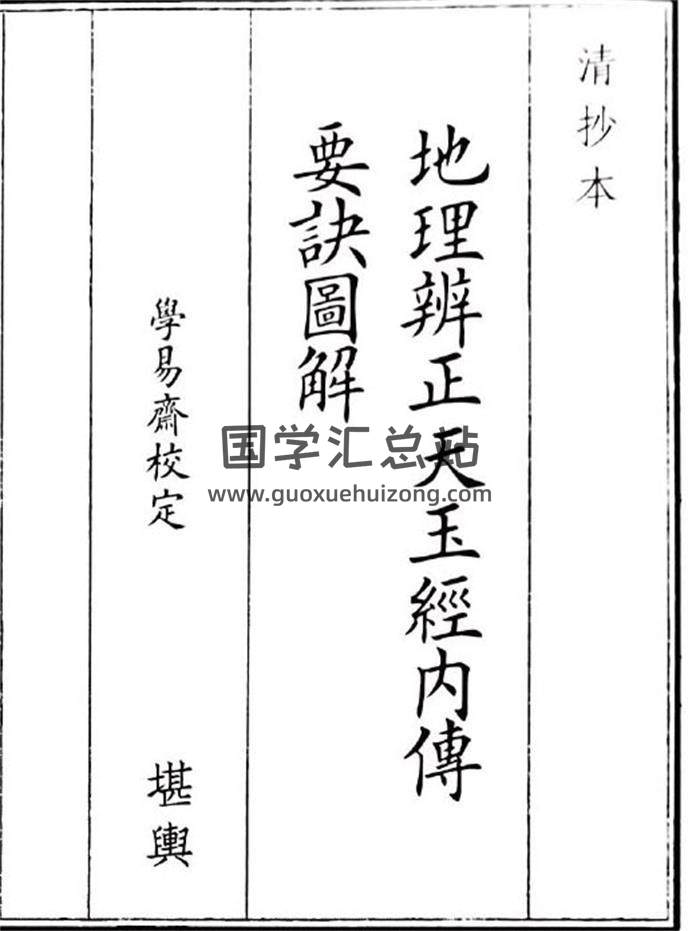 清抄本
地理辨正天玉經内傳
要訣圖解
學易齋校定
堪輿
国学汇总站
www.guoxuehuizong.com